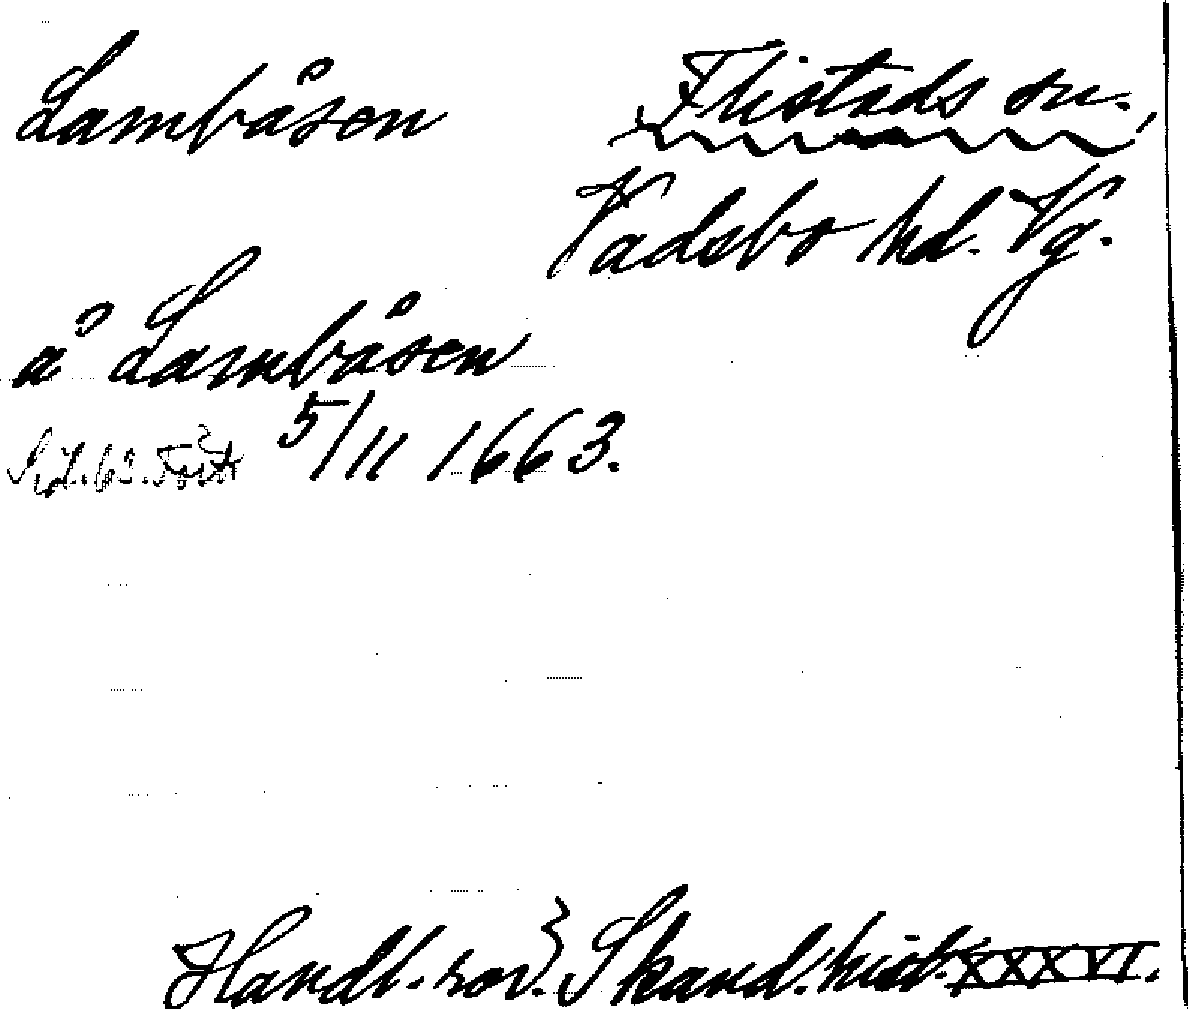 Lambåsen
Flistads sn.,
Vadsbo hd. Vg.
å Lambåsen
5/11 1663.
Handl. rör. Skand. hist. XXXVI.